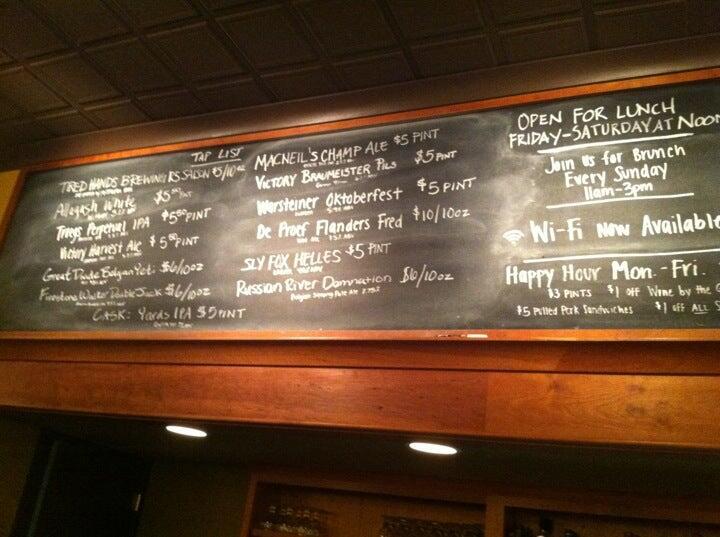 TAP LIST
TIRED HANDS BREWING RS SAISON $5/10oz
Allagash White $5 PINT
Troegs Perpetual IPA $5 PINT
Victory Harvest Ale $5 PINT
Great Divide Belgian $6/10oz
Firestone Walker Double Jack $6/10oz
CASK: Yards IPA $5 PINT
MACNEIL'S CHAMP ALE $5 PINT
VICTORY BRAUMEISTER PILS $5 PINT
Warsteiner Oktoberfest $5 PINT
De Proef Flanders Fred $10/10oz
SLY FOX HELLES $5 PINT
Russian River Damnation $6/10oz
Belgian Strong Pale Ale
OPEN FOR LUNCH
FRIDAY-SATURDAY AT NOON
Join us for Brunch
Every Sunday
11am-3pm
Wi-Fi Now Available
Happy Hour Mon.-Fri.
$3 PINTS $1 off Wine by the G
$5 Pulled Pork Sandwiches $1 off ALL